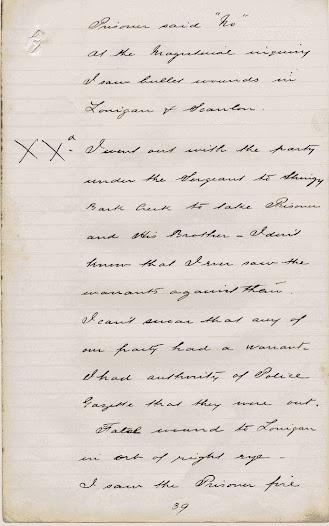 Prisoner said "No"
At the Magisterial inquiry
I saw bullet wounds in
Lonigan & Scanlon.
XX a. I went out with the party
under the Sergeant to Stringy
Bark Creek to take Prisoner
and His Brother - I don't
know that I ever saw the
warrants against them.
I can't swear that any of
our party had a warrant.
I had authority of Police
Gazette that they were out.
Fatal wound to Lonigan
in orb of right eye -
I saw the Prisoner fire
39